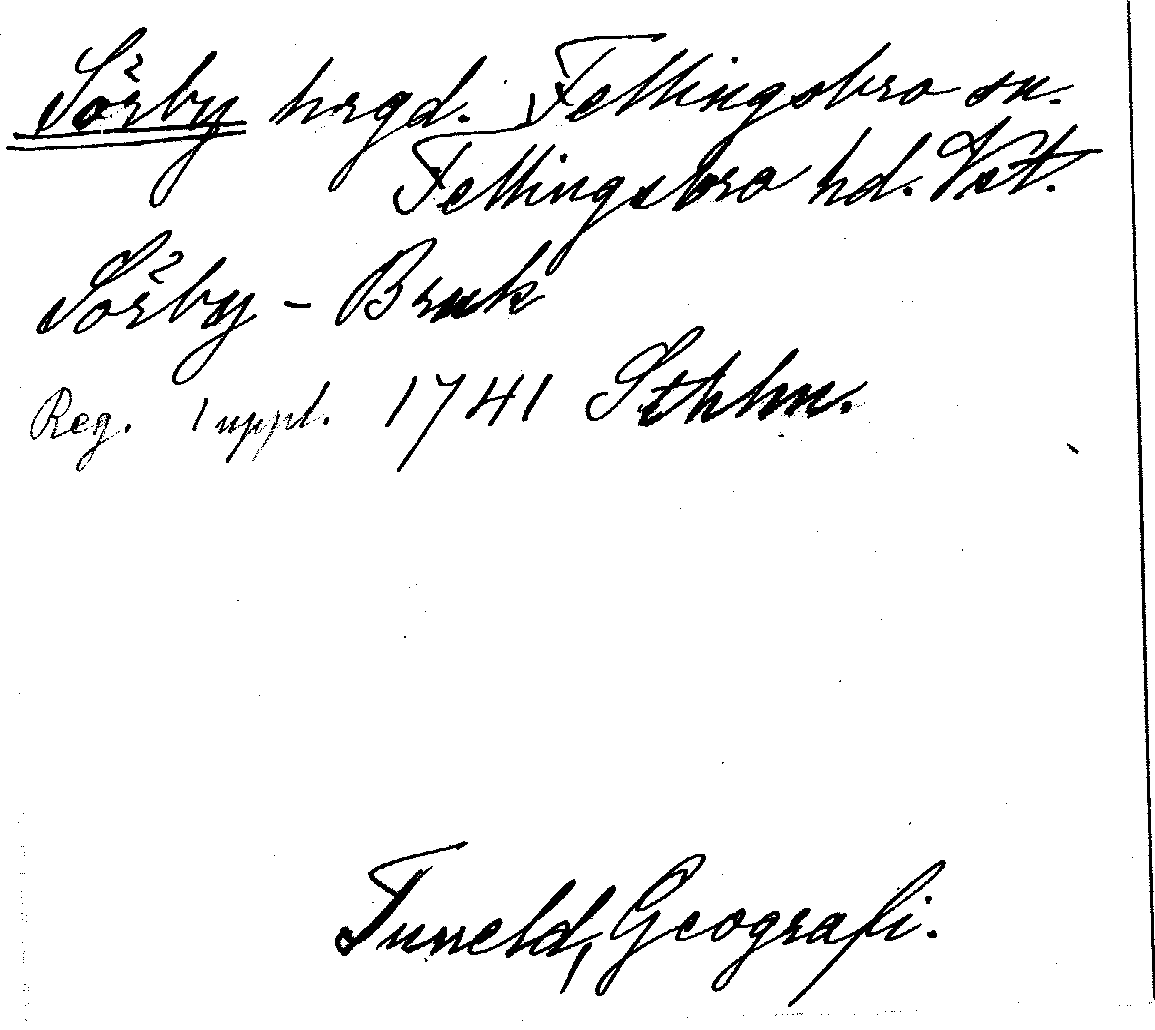 Sörby hrgd. Fellingsbro sn.
Fellingsbro hd. Vst.
Sörby - Bruk
Reg. 1 uppl. 1741 Sthlm.
Tuneld, Geografi.